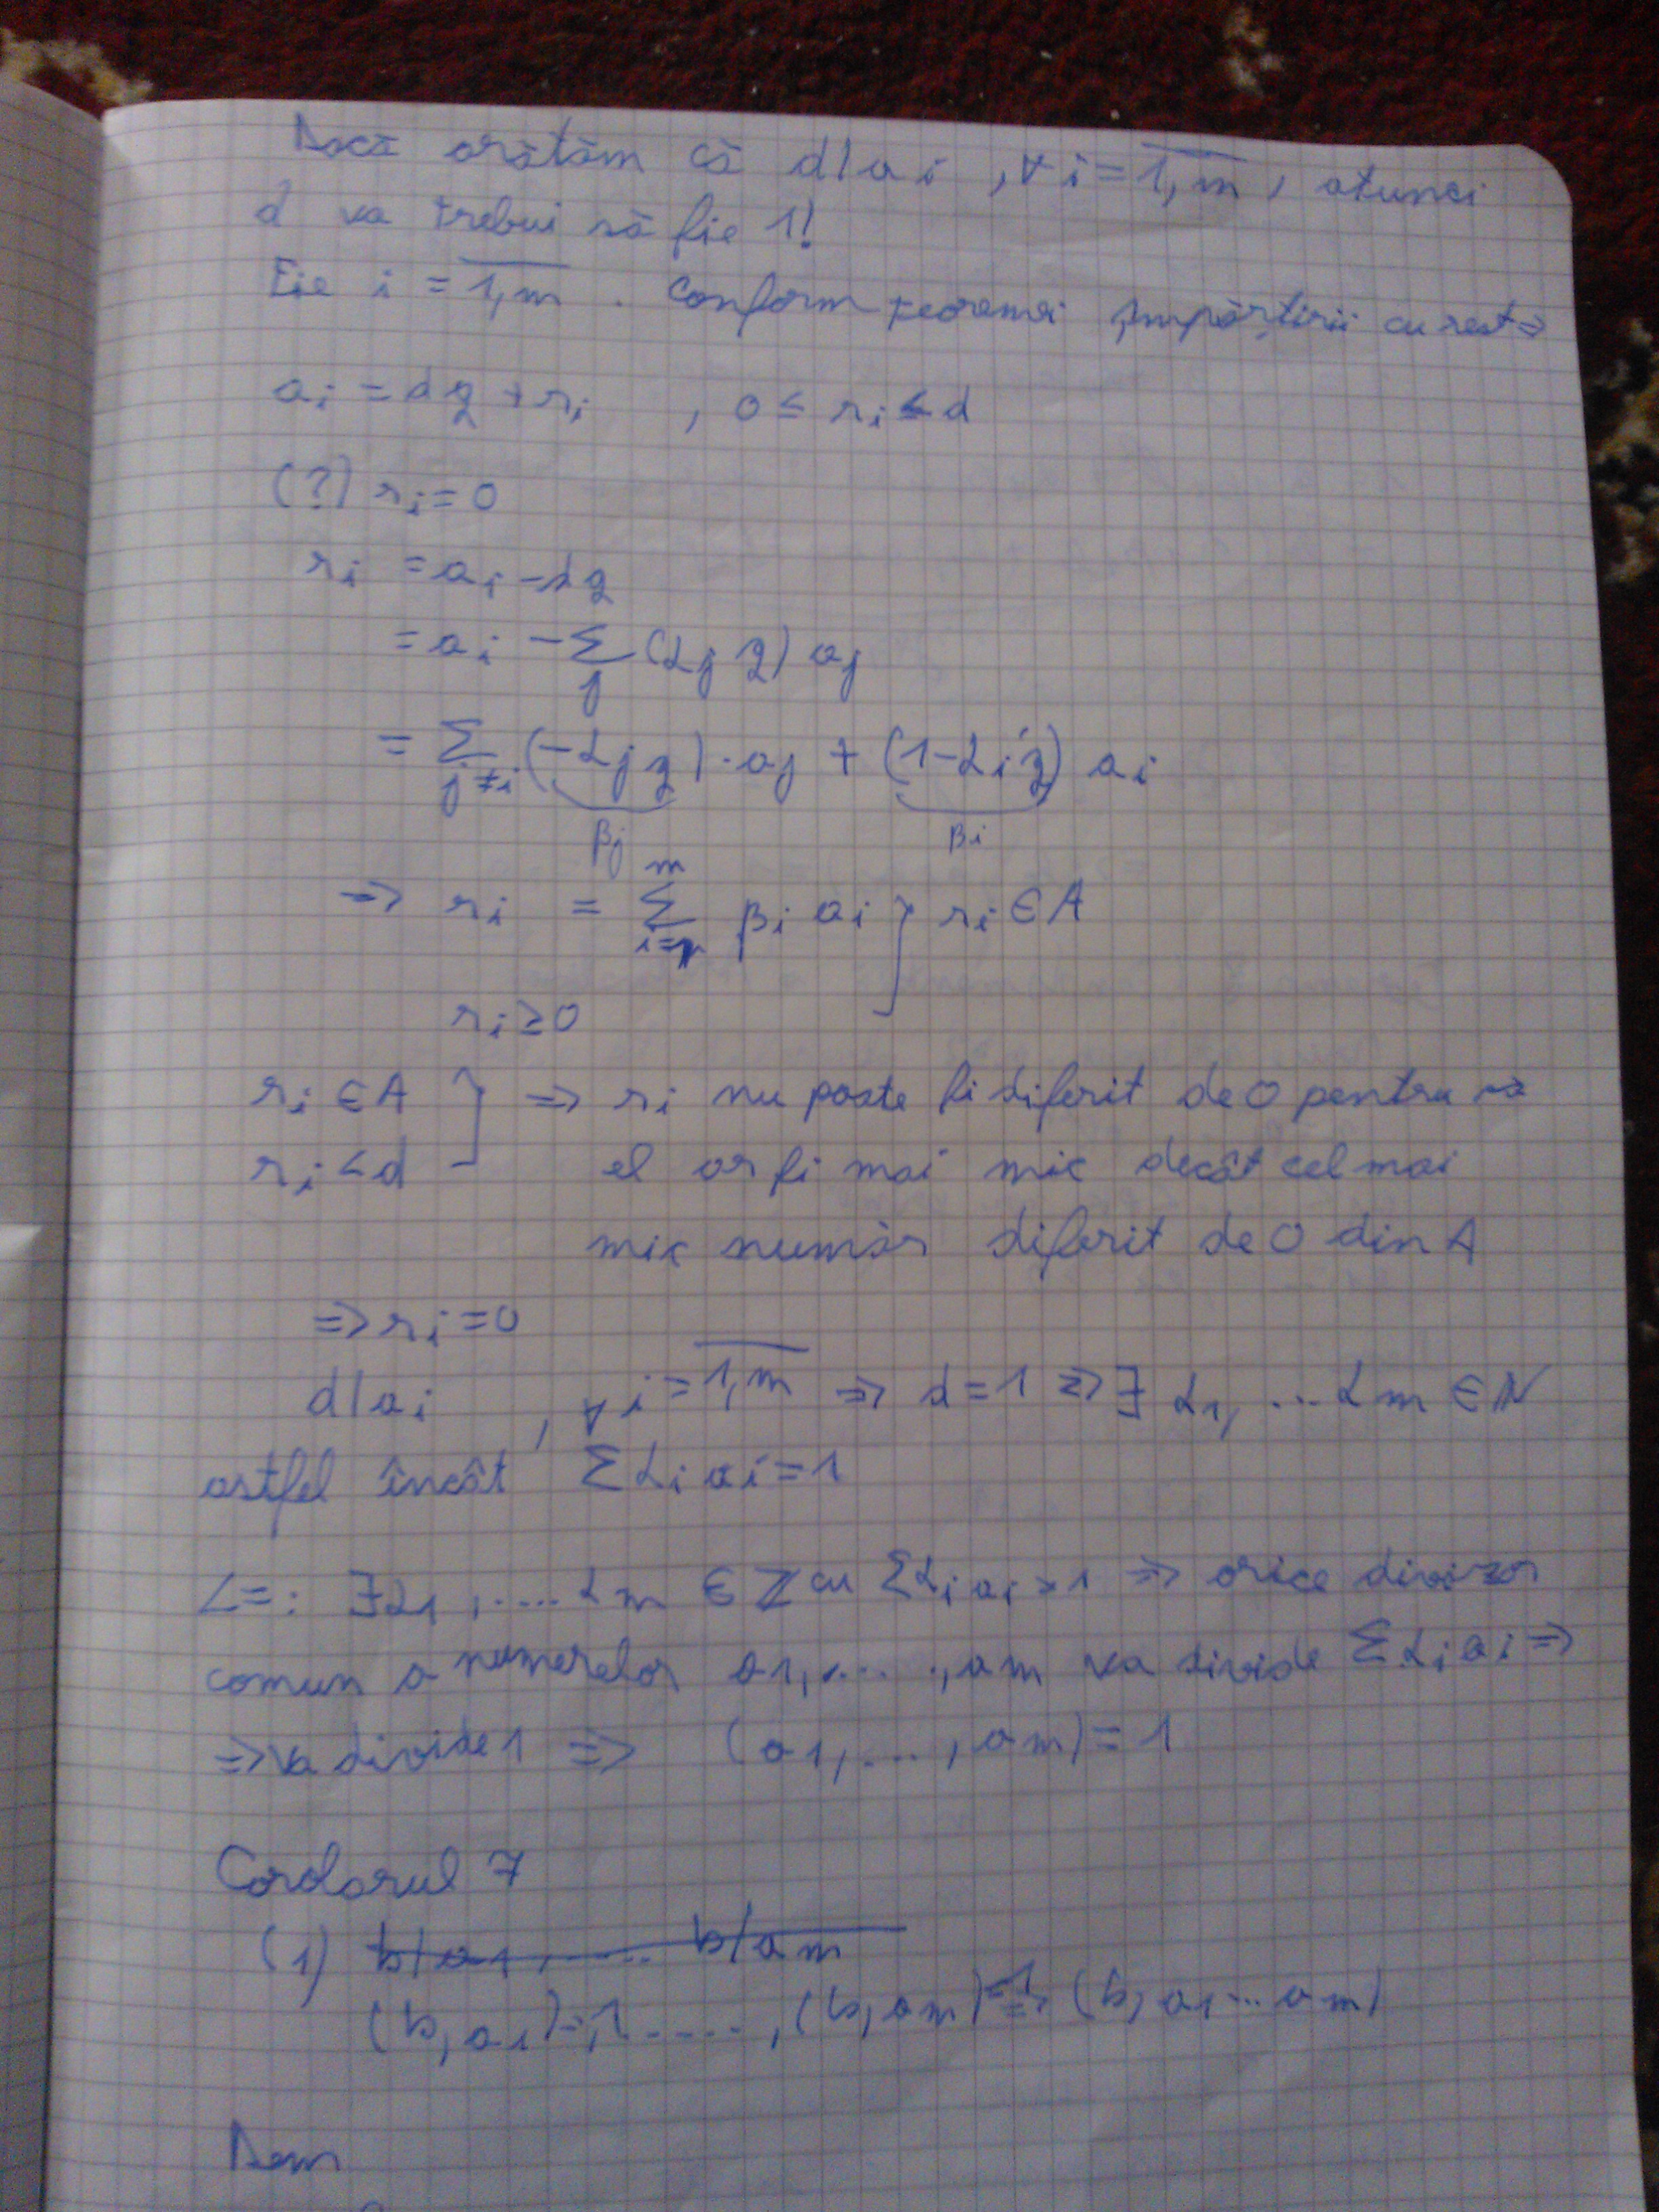 Dacă arătăm că d|ai , ∀ i = 1,m , atunci
d va trebui să fie 1!
Fie i = 1,m . Conform teoremei împărțirii cu rest ⇒
ai = dq + ri , 0 ≤ ri < d
(?) ri = 0
ri = ai - dq
= ai - Σj (αj q) aj
= Σj≠i (-αj q) · aj + (1 - αi q) ai
βj βi
⇒ ri = Σ βi ai } ri ∈ A
ri ≥ 0
ri ∈ A } ⇒ ri nu poate fi diferit de 0 pentru că
ri < d el ar fi mai mic decât cel mai
mic număr diferit de 0 din A
⇒ ri = 0
d|ai , ∀ i = 1,m ⇒ d = 1 ⇒ ∃ α1, ... αm ∈ N
astfel încât Σ αi ai = 1
<=: ∃ α1, .... αm ∈ Z cu Σ αi ai = 1 ⇒ orice divizor
comun a numerelor a1, ...., am va divide Σ αi ai ⇒
⇒ va divide 1 ⇒ (a1, ..., am) = 1
Corolarul 7
(1) b|a1, .... b|am
(b, a1) = 1, ...., (b, am) = 1 ⇒ (b, a1 ... am)
Dem